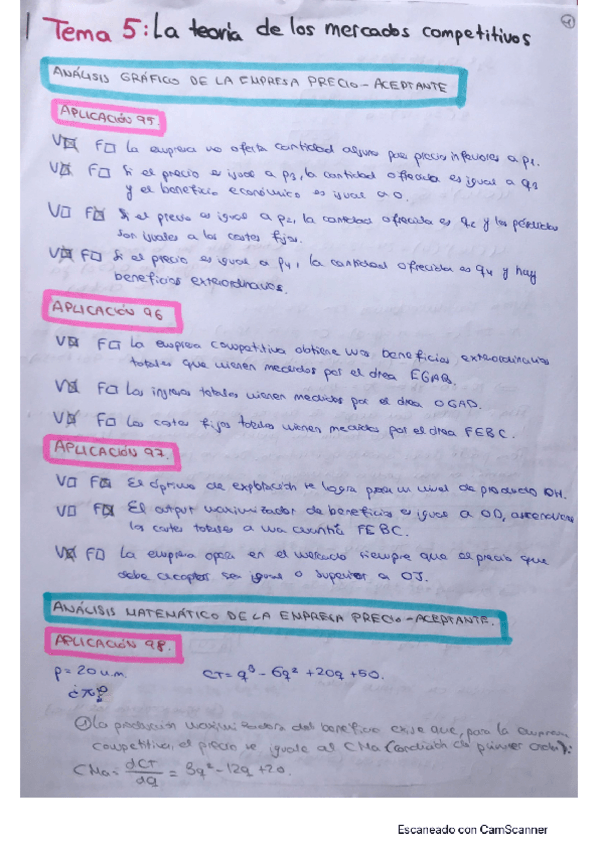 1
Tema 5: La teoría de los mercados competitivos
ANÁLISIS GRÁFICO DE LA EMPRESA PRECIO-ACEPTANTE
APLICACIÓN 95
V☒ F☐ La empresa no oferta cantidad alguna para precio inferiores a p1.
V☒ F☐ Si el precio es igual a p3, la cantidad ofrecida es igual a q3
y el beneficio económico es igual a 0.
V☐ F☒ Si el precio es igual a p2, la cantidad ofrecida es q2 y las pérdidas
son iguales a los costes fijos.
V☒ F☐ Si el precio es igual a p4, la cantidad ofrecida es q4 y hay
beneficios extraordinarios.
APLICACIÓN 96
V☒ F☐ La empresa competitiva obtiene unos beneficios extraordinarios
totales que vienen medidos por el área EGAB.
V☒ F☐ Los ingresos totales vienen medidos por el área OGAD.
V☒ F☐ Los costes fijos totales vienen medidos por el área FEBC.
APLICACIÓN 97.
V☐ F☒ El óptimo de explotación se logra para un nivel de producto OH.
V☐ F☒ El output maximizador de beneficios es igual a OD, ascendiendo
los costes totales a una cuantía FEBC.
V☒ F☐ La empresa opera en el mercado siempre que el precio que
debe aceptar sea igual o superior a OJ.
ANÁLISIS MATEMÁTICO DE LA EMPRESA PRECIO-ACEPTANTE.
APLICACIÓN 98.
p = 20 u.m. CT = q³ - 6q² + 20q + 50.
① La producción maximizadora del beneficio exige que, para la empresa
competitiva, el precio se iguale al CMa (condición de primer orden):
CMa = dCT/dq = 3q² - 12q + 20.
Escaneado con CamScanner